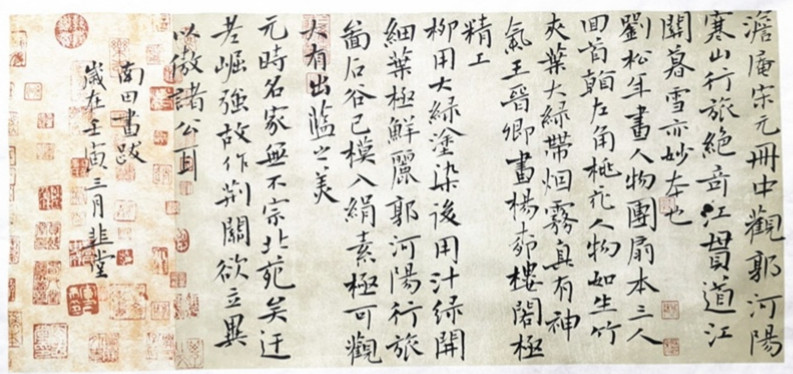 澹庵宋元冊中觀郭河陽
寒山行旅絕奇江貫道江
關暮雪亦妙本也
劉松年畫人物團扇本三人
回首左角桃花人物如生竹
夾葉大綠帶烟霧真有神
氣王晉卿畫楊柳樓閣極
精工
柳用大綠塗染後用汁綠開
細葉極鮮麗郭河陽行旅
圖石谷已模入絹素極可觀
大有出藍之美
元時名家無不宗北苑矣迂
老崛強故作荊關欲立異
以傲諸公耳
南田畫跋
歲在壬寅三月韭堂